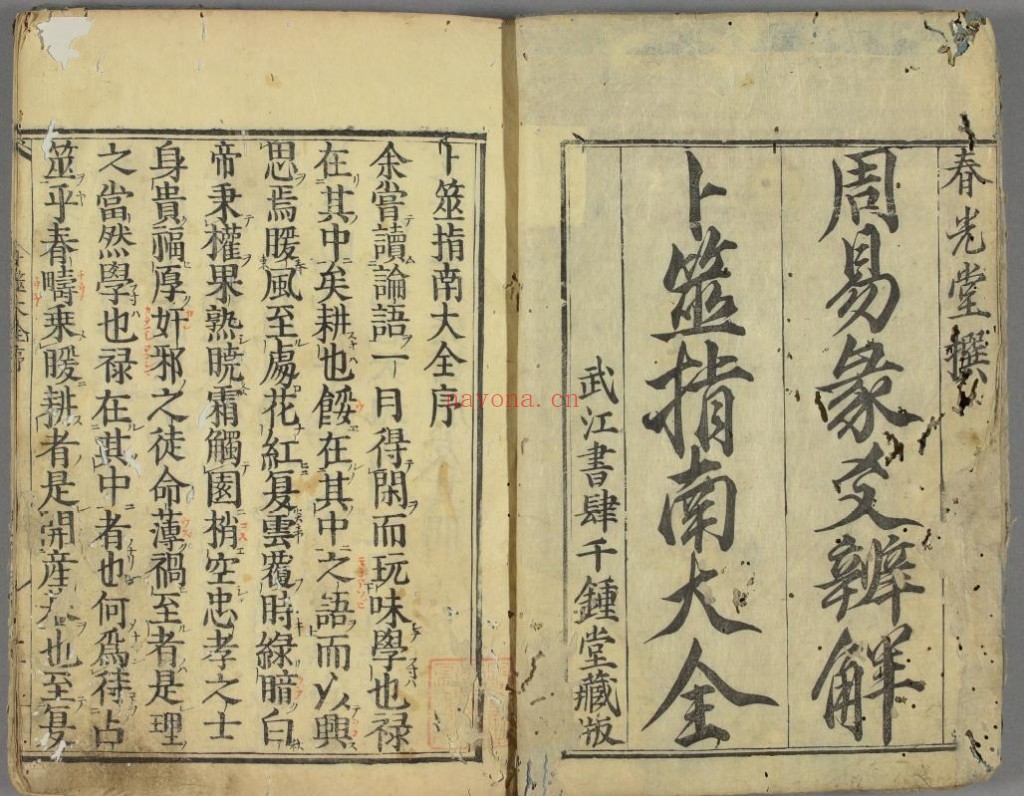 春光堂撰
周易彖爻辨解
卜筮指南大全
武江書肆千鍾堂藏版
卜筮指南大全序
余嘗讀論語一日得閑而玩味學也禄
在其中矣耕也餒在其中之語而以興
思焉暖風至處花紅夏雲覆時緑暗白
帝秉權果熟曉霜觸園梢空忠孝之士
身貴福厚奸邪之徒命薄禍至者是理
之當然學也禄在其中者也何爲待占
筮乎春疇乗暖耕者是開産也至夏
nayona.cn